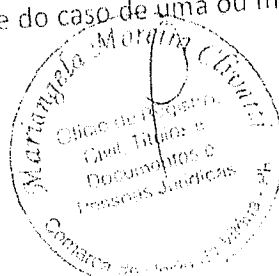 e do caso de uma ou m
Mariangela Clivatti
Ofício de Registro
Civil, Títulos e
Documentos e
Pessoas Jurídicas
Comarca de